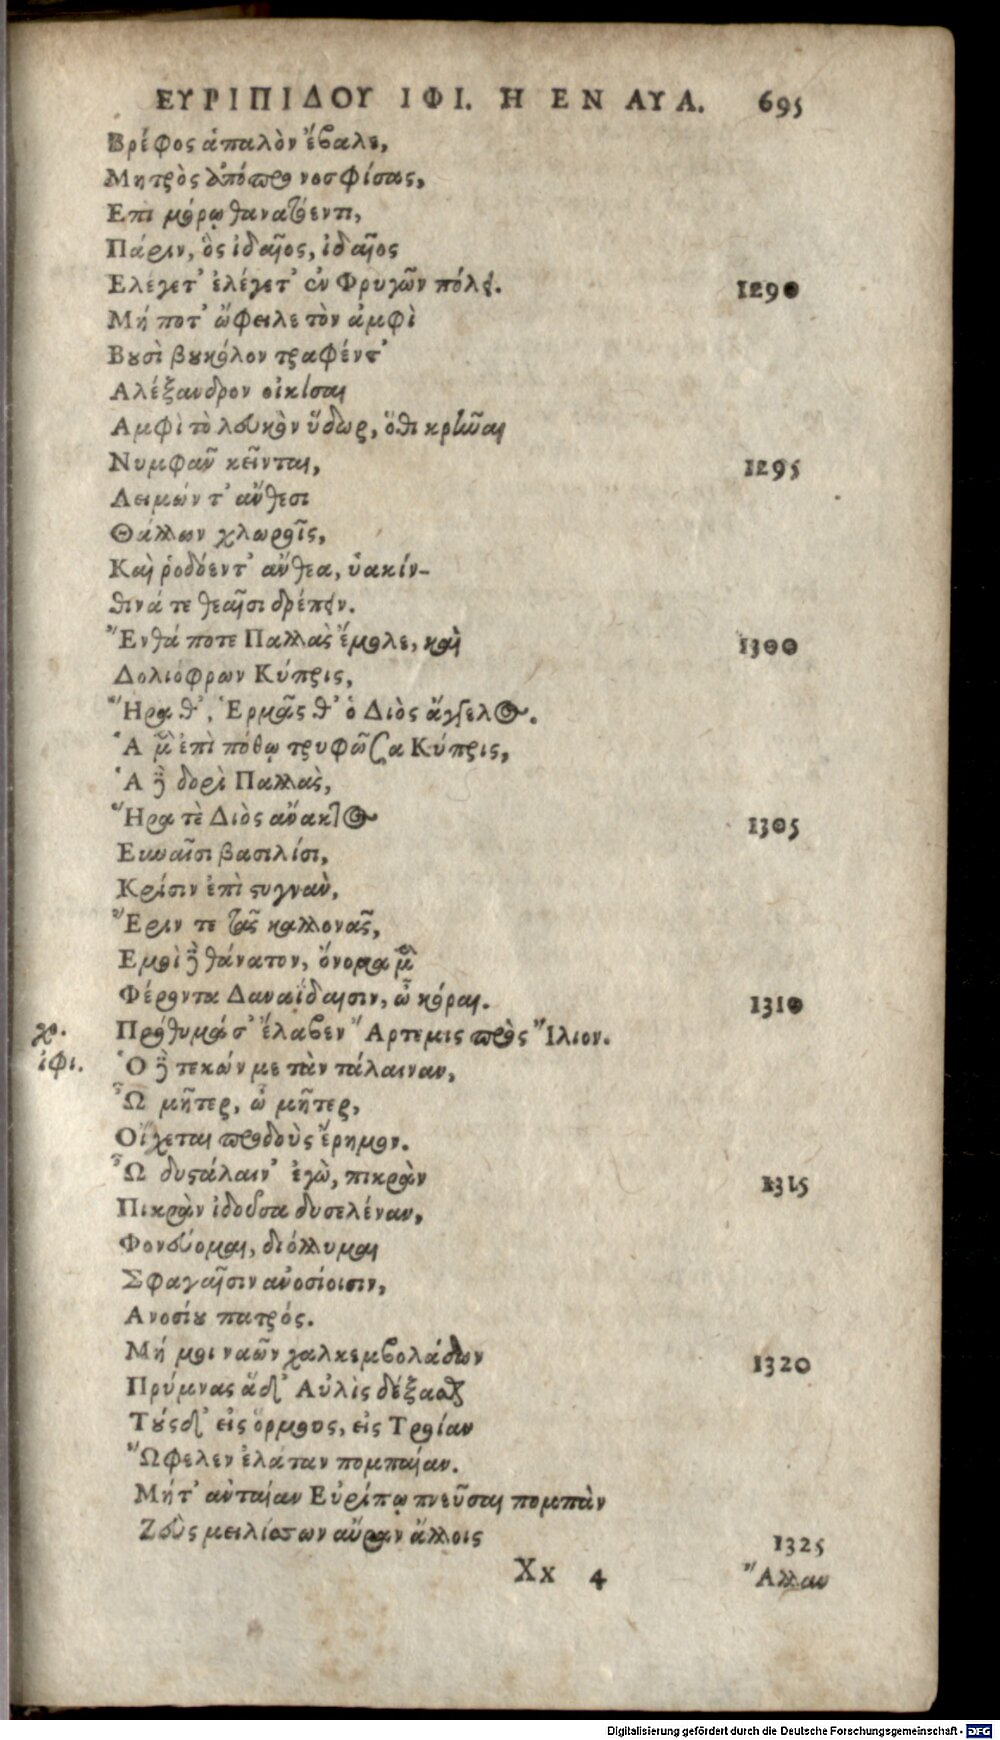 ΕΥΡΙΠΙΔΟΥ ΙΦΙ. Η ΕΝ ΑΥΛ. 695
Βρέφος ἁπαλὸν ἔβαλε,
Μητρὸς ἀπόπρο νοσφίσας,
Επὶ μόρῳ θανατόεντι,
Πάριν, ὃς ἰδαῖος, ἰδαῖος
Ελέγετ' ἐλέγετ' ἐν Φρυγῶν πόλει. 1290
Μή ποτ' ὤφειλε τὸν ἀμφὶ
Βουσὶ βουκόλον τραφέντ'
Αλέξανδρον οἰκίσαι
Αμφὶ τὸ λευκὸν ὕδωρ, ὅθι κρῆναι
Νυμφᾶν κεῖνται, 1295
Λειμών τ' ἄνθεσι
Θάλλων χλωροῖς,
Καὶ ῥοδόεντ' ἄνθεα, ὑακίν-
θινά τε θεαῖσι δρέπειν.
Ἔνθά ποτε Παλλὰς ἔμολε, καὶ 1300
Δολιόφρων Κύπρις,
Ἥρα θ', Ἑρμᾶς θ' ὁ Διὸς ἄγγελος.
Ἁ μὲν ἐπὶ πόθῳ τρυφῶσα Κύπρις,
Ἁ δὲ δορὶ Παλλὰς,
Ἥρα τὲ Διὸς ἄνακτος 1305
Εὐναῖσι βασιλίσι,
Κρίσιν ἐπὶ στυγνὰν,
Ἔριν τε τᾶς καλλονᾶς,
Εμοὶ δὲ θάνατον, ὄνομα μὲν
Φέροντα Δαναΐδαισιν, ὦ κόραι. 1310
χο. Πρόθυμά σ' ἔλαβεν Ἄρτεμις πρὸς Ἴλιον.
ἰφι. Ὁ δὲ τεκών με τὰν τάλαιναν,
Ὦ μῆτερ, ὦ μῆτερ,
Οἴχεται προδοὺς ἔρημον.
Ὦ δυστάλαιν' ἐγὼ, πικρὰν 1315
Πικρὰν ἰδοῦσα δυσελέναν,
Φονεύομαι, διόλλυμαι
Σφαγαῖσιν ἀνοσίοισιν,
Ανοσίου πατρός.
Μή μοι ναῶν χαλκεμβολάδων 1320
Πρύμνας ἅδ' Αὐλὶς δέξασθαι
Τούςδ' εἰς ὅρμους, εἰς Τροίαν
Ὤφελεν ἐλάταν πομπαίαν.
Μήτ' ἀνταίαν Εὐρίπῳ πνεῦσαι πομπὰν
Ζεὺς μειλίσσων αὔραν ἄλλοις 1325
Xx 4 Ἄλλαν
Digitalisierung gefördert durch die Deutsche Forschungsgemeinschaft - DFG